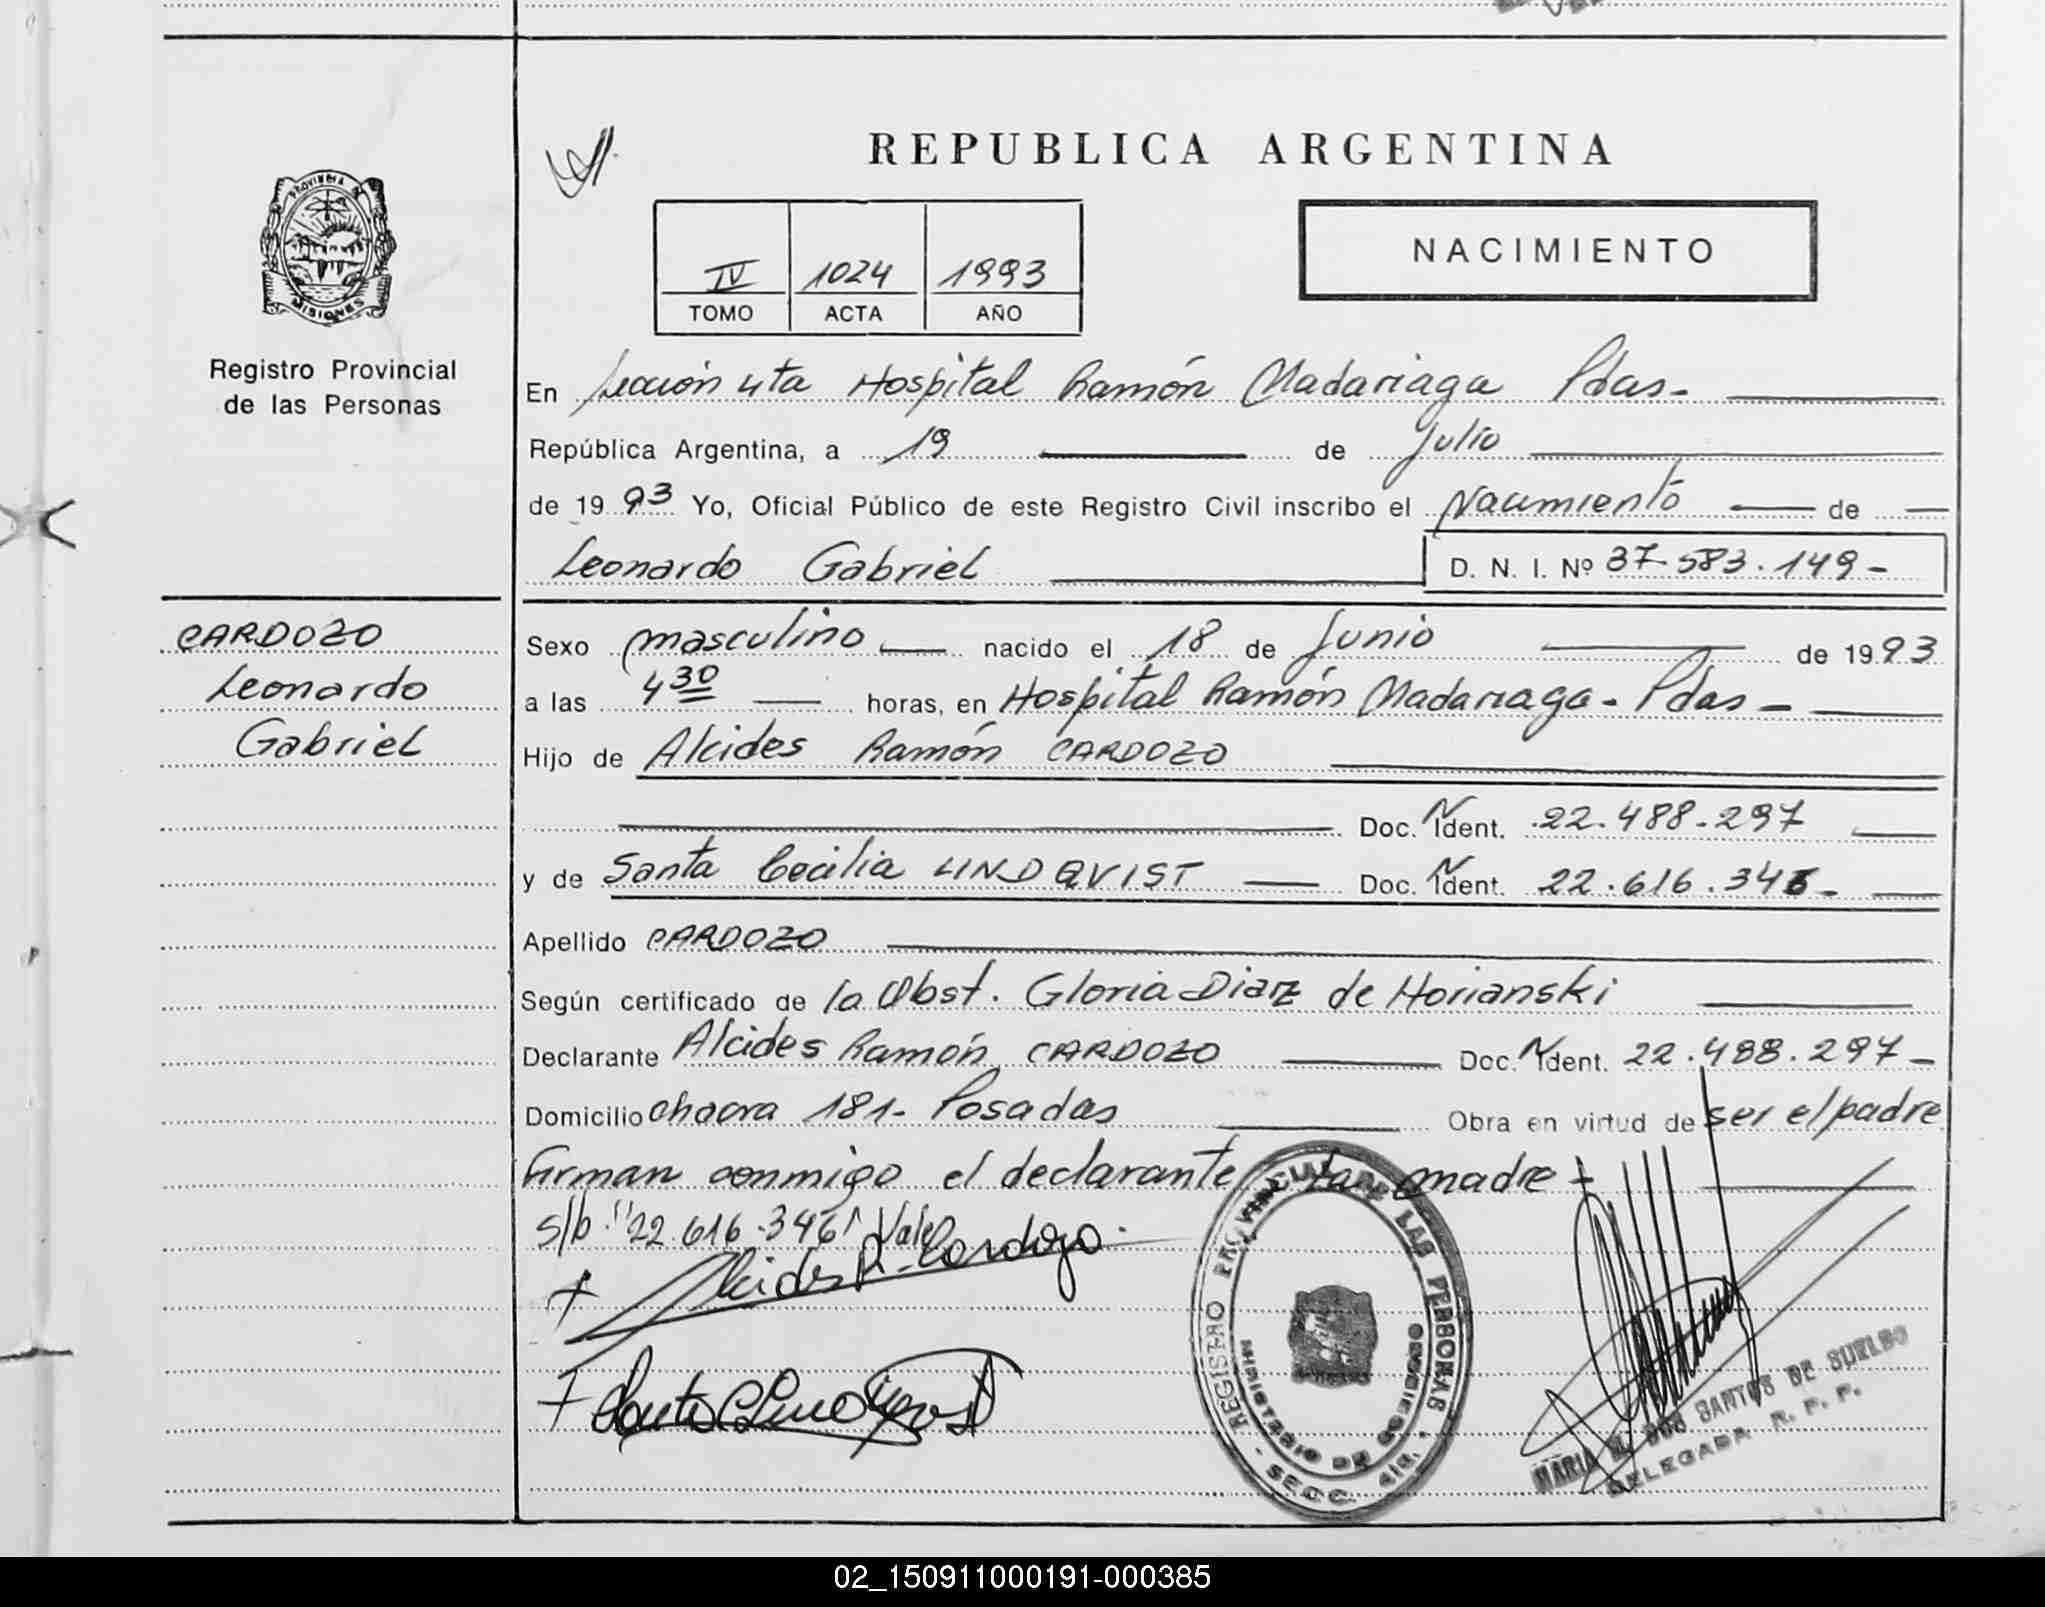 REPUBLICA ARGENTINA
NACIMIENTO
IV 1024 1993
TOMO ACTA AÑO
PROVINCIA DE
MISIONES
Registro Provincial
de las Personas
En Sección 4ta Hospital Ramón Madariaga Pdas-
República Argentina, a 19 de Julio
de 1993 Yo, Oficial Público de este Registro Civil inscribo el Nacimiento de
Leonardo Gabriel D. N. I. Nº 37.583.149-
CARDOZO
Leonardo
Gabriel
Sexo masculino nacido el 18 de Junio de 1993
a las 4 30 horas, en Hospital Ramón Madariaga - Pdas -
Hijo de Alcides Ramón CARDOZO
Doc. N Ident. 22.488.297
y de Santa Cecilia LINDQVIST Doc. N Ident. 22.616.346-
Apellido CARDOZO
Según certificado de la Obst. Gloria Diaz de Horianski
Declarante Alcides Ramón CARDOZO Doc. N Ident. 22.488.297-
Domicilio chacra 181- Posadas Obra en virtud de ser el padre
Firman conmigo el declarante la madre +
s/b "22.616.346" Vale
Alcides R. Cardozo
REGISTRO PROVINCIAL DE LAS PERSONAS
MINISTERIO DE GOBIERNO
- SECC. 4ta. -
MARIA DOS SANTOS DE SUELDO
DELEGADA R. P. P.
02_150911000191-000385